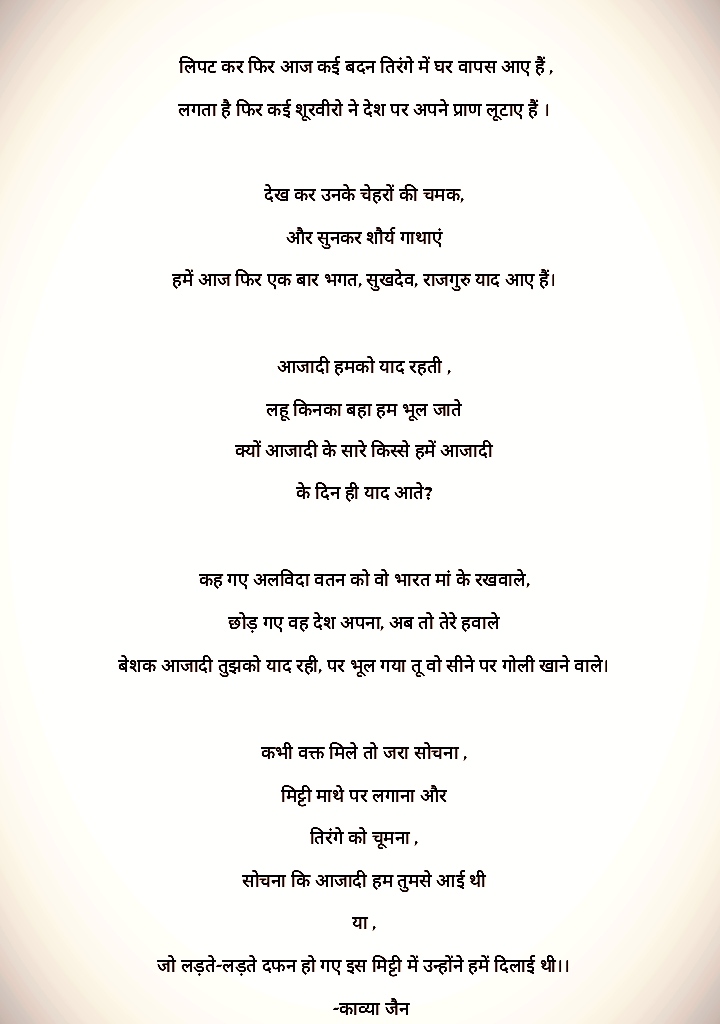 लिपट कर फिर आज कई बदन तिरंगे में घर वापस आए हैं ,
लगता है फिर कई शूरवीरो ने देश पर अपने प्राण लूटाए हैं ।
देख कर उनके चेहरों की चमक,
और सुनकर शौर्य गाथाएं
हमें आज फिर एक बार भगत, सुखदेव, राजगुरु याद आए हैं।
आजादी हमको याद रहती ,
लहू किनका बहा हम भूल जाते
क्यों आजादी के सारे किस्से हमें आजादी
के दिन ही याद आते?
कह गए अलविदा वतन को वो भारत मां के रखवाले,
छोड़ गए वह देश अपना, अब तो तेरे हवाले
बेशक आजादी तुझको याद रही, पर भूल गया तू वो सीने पर गोली खाने वाले।
कभी वक्त मिले तो जरा सोचना ,
मिट्टी माथे पर लगाना और
तिरंगे को चूमना ,
सोचना कि आजादी हम तुमसे आई थी
या ,
जो लड़ते-लड़ते दफन हो गए इस मिट्टी में उन्होंने हमें दिलाई थी।।
-काव्या जैन